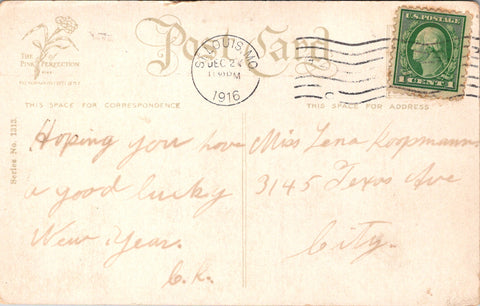 THE
PINK PERFECTION
Post Card
ST. LOUIS, MO.
DEC 24
PM
1916
U.S. POSTAGE
1 CENT 1
THIS SPACE FOR CORRESPONDENCE
THIS SPACE FOR ADDRESS
Series No. 1313.
Hoping you have
a good lucky
New Year.
C.K.
Miss Lena Koopmann
3145 Texas Ave
City.